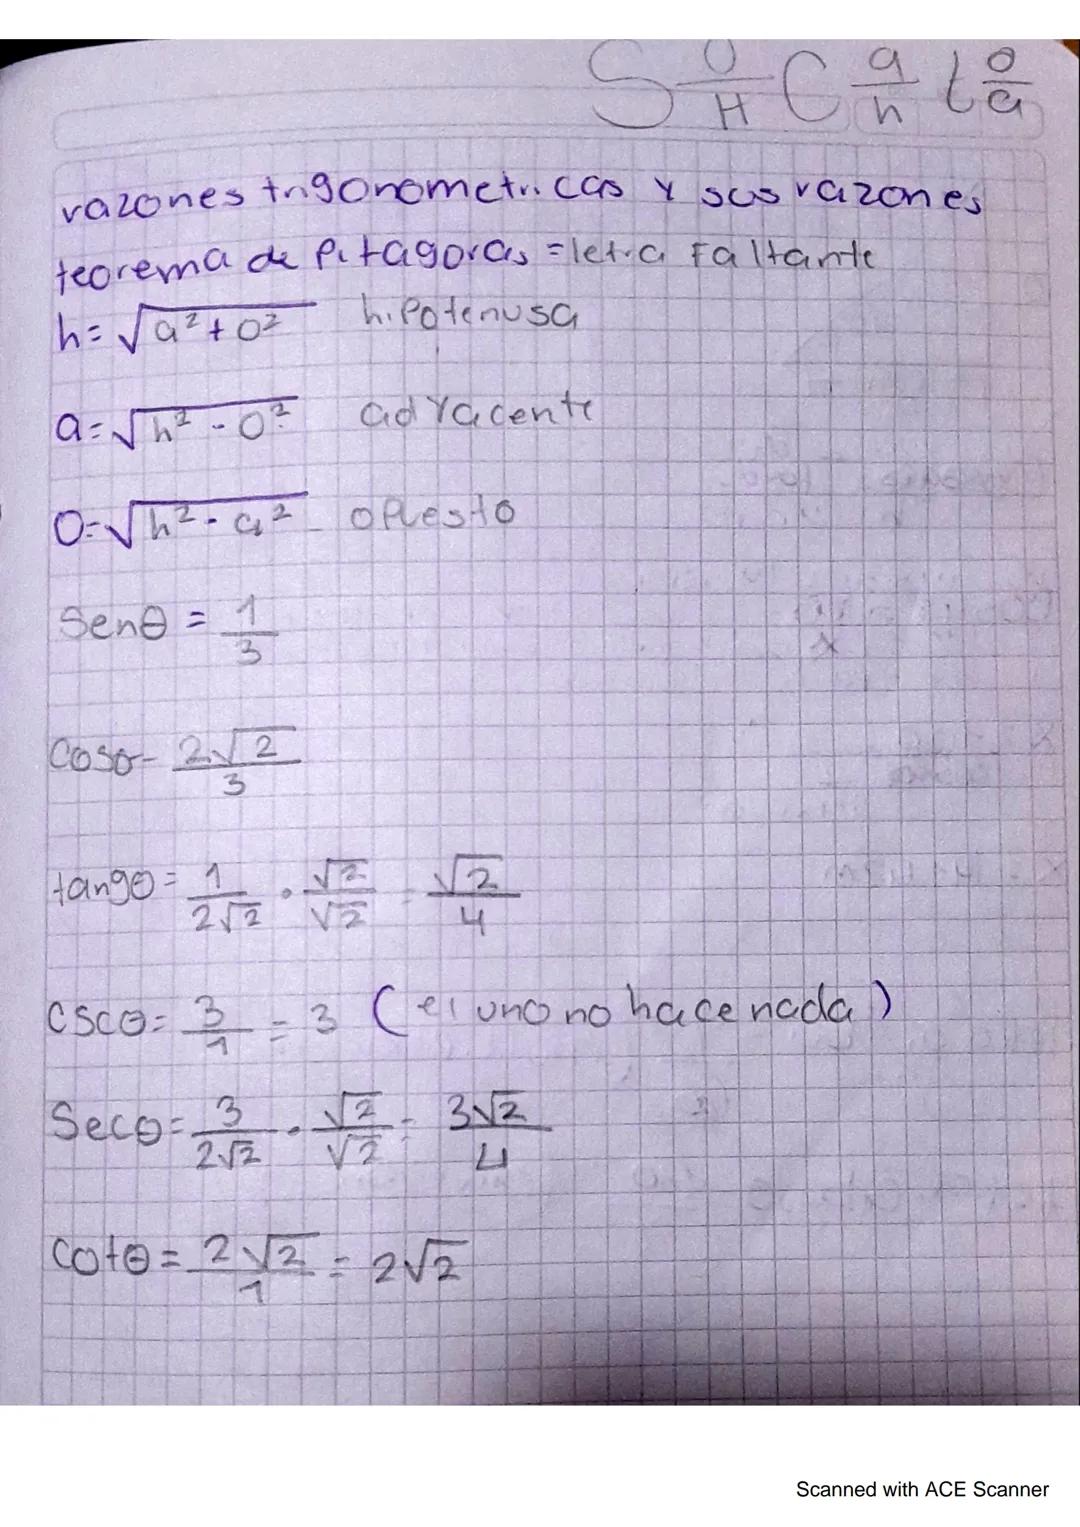 S O/H C a/h t o/a
razones trigonometricas y sus razones
teorema de Pitagoras = letra Faltante
h = √a² + o² hipotenusa
a = √h² - o² adyacente
O = √h² - a² opuesto
Senθ = 1/3
Cosθ - 2√2/3
tangθ = 1/2√2 · √2/√2 = √2/4
Cscθ = 3/1 = 3 (el uno no hace nada)
Secθ = 3/2√2 · √2/√2 = 3√2/4
Cotθ = 2√2/1 = 2√2
Scanned with ACE Scanner